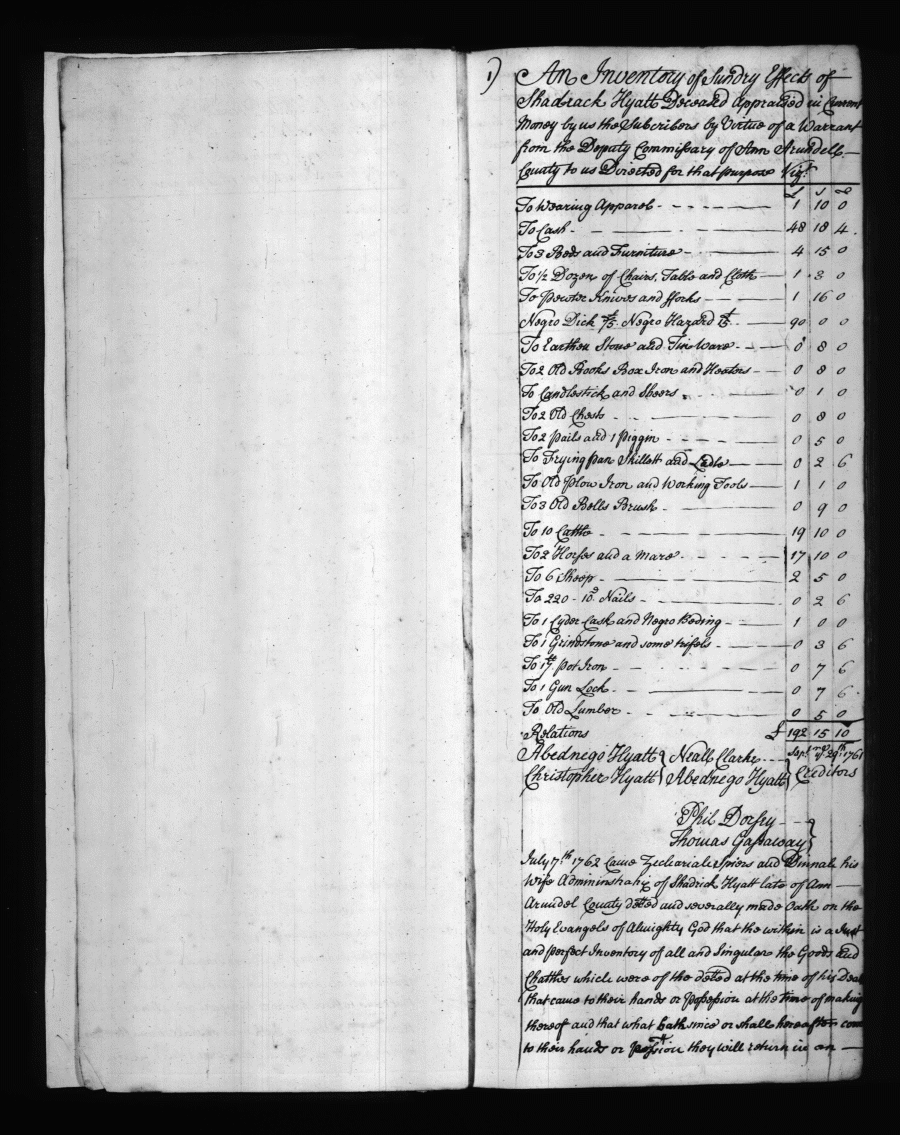 1) An Inventory of Sundry Effects of
Shadrack Hyatt Deceased appraised in Current
Money by us the Subcribers by Virtue of a Warrant
from the Deputy Commissary of Ann Arundell
County to us Directed for that purpose Vizt
£ s d
To Wearing Apparel 1 10 0
To Cash 48 18 4
To 3 Beds and Furniture 4 15 0
To 1/2 Dozen of Chairs, Table and Cloth 1 3 0
To Pewter Knives and fforks 1 16 0
Negro Dick Negro Hazard 90 0 0
To Earthen Stone and Tin Ware 0 8 0
To 2 Old Books Box Iron and Heeters 0 8 0
To Candlestick and Sheers 0 1 0
To 2 Old Chests 0 8 0
To 2 pails and 1 piggin 0 5 0
To Frying pan Skillett and Ladle 0 2 6
To Old Plow Iron and Working Tools 1 1 0
To 3 Old Bells Brush 0 9 0
To 10 Cattle 19 10 0
To 2 Horses and a Mare 17 10 0
To 6 Sheep 2 5 0
To 220 - 10d Nails 0 2 6
To 1 Cyder Cask and Negro Beding 1 0 0
To 1 Grindstone and some trifels 0 3 6
To 17 pot Iron 0 7 6
To 1 Gun Lock 0 7 6
To Old Lumber 0 5 0
Relations £ 192 15 10
Abednego Hyatt } Neall Clarke Sept 29th 1761
Christopher Hyatt } Abednego Hyatt } Creditors
Phil Dorsey
Thomas Gassaway }
July 7th 1762 Came Zecheriah Spiers and his
Wife Adminstratrix of Shadrick Hyatt late of Ann
Arundel County deced and severally made Oath on the
Holy Evangels of Almighty God that the within is a Just
and perfect Inventory of all and Singular the Goods and
Chattles which were of the deced at the time of his Dea
that came to their hands or possession at the time of making
thereof and that what hath since or shall hereafter com
to their hands or they will return in an